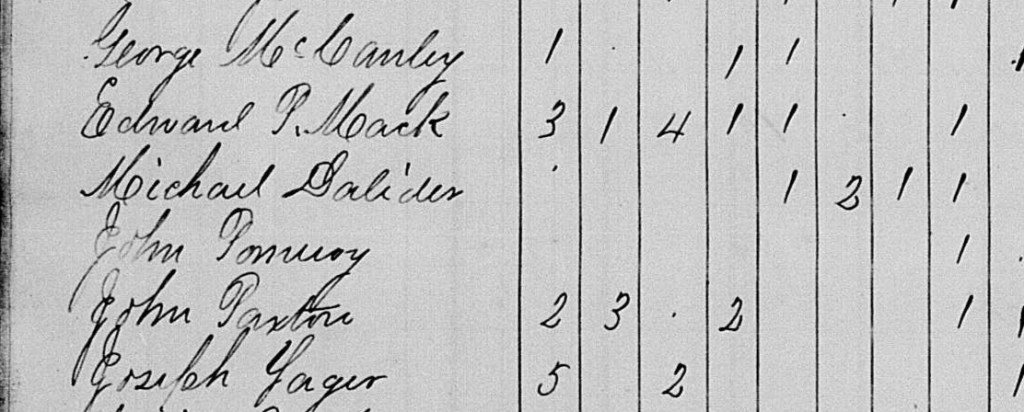 George McCanley 1 1 1
Edward P. Mack 3 1 4 1 1 1
Michael Dalider 1 2 1 1
John Pomeroy 1
John Paxton 2 3 2 1
Joseph Yager 5 2